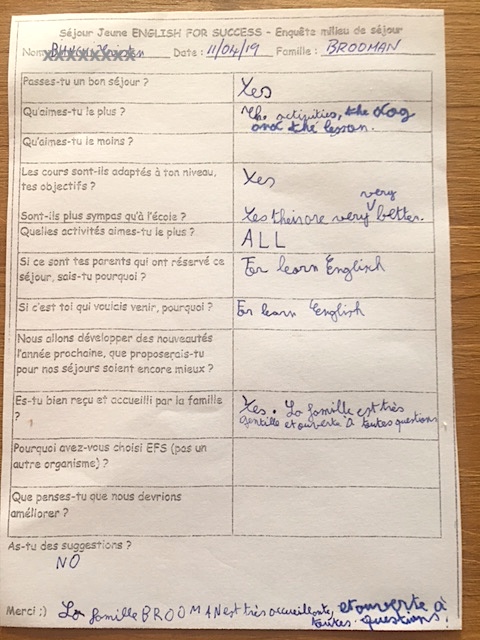 Séjour Jeune ENGLISH FOR SUCCESS - Enquête milieu de séjour
Nom Date : 11/04/19 Famille : BRODMAN
Passes-tu un bon séjour ? Yes
Qu'aimes-tu le plus ? The activities, the dog
and the lesson.
Qu'aimes-tu le moins ?
Les cours sont-ils adaptés à ton niveau,
tes objectifs ? Yes
very
Sont-ils plus sympas qu'à l'école ? Yes theirs are very better.
Quelles activités aimes-tu le plus ? ALL
Si ce sont tes parents qui ont réservé ce
séjour, sais-tu pourquoi ? For learn English
Si c'est toi qui voulais venir, pourquoi ? For learn English
Nous allons développer des nouveautés
l'année prochaine, que proposerais-tu
pour nos séjours soient encore mieux ?
Es-tu bien reçu et accueilli par la famille
? Yes. La famille est très
gentille et ouverte à toutes questions
Pourquoi avez-vous choisi EFS (pas un
autre organisme) ?
Que penses-tu que nous devrions
améliorer ?
As-tu des suggestions ?
NO
Merci ;) La famille BRODMAN est très accueillante, et ouverte à
toutes questions!